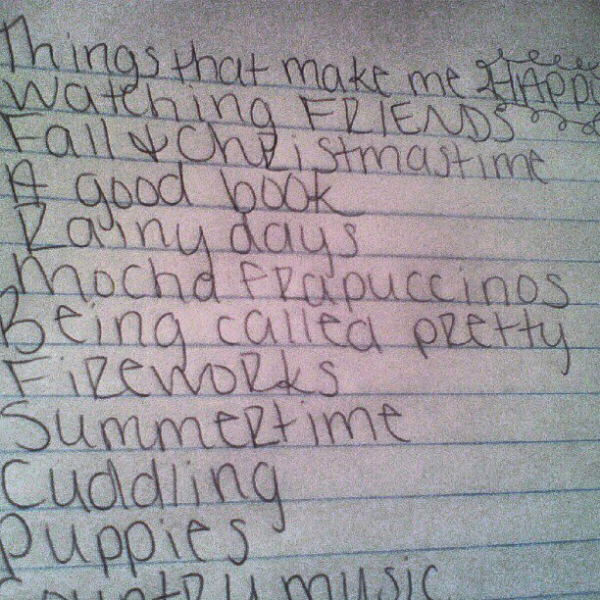 Things that make me HAPPY
Watching FRIENDS
Fall & Christmastime
A good book
Rainy days
Mocha Frapuccinos
Being called pretty
Fireworks
Summertime
Cuddling
Puppies
Country music